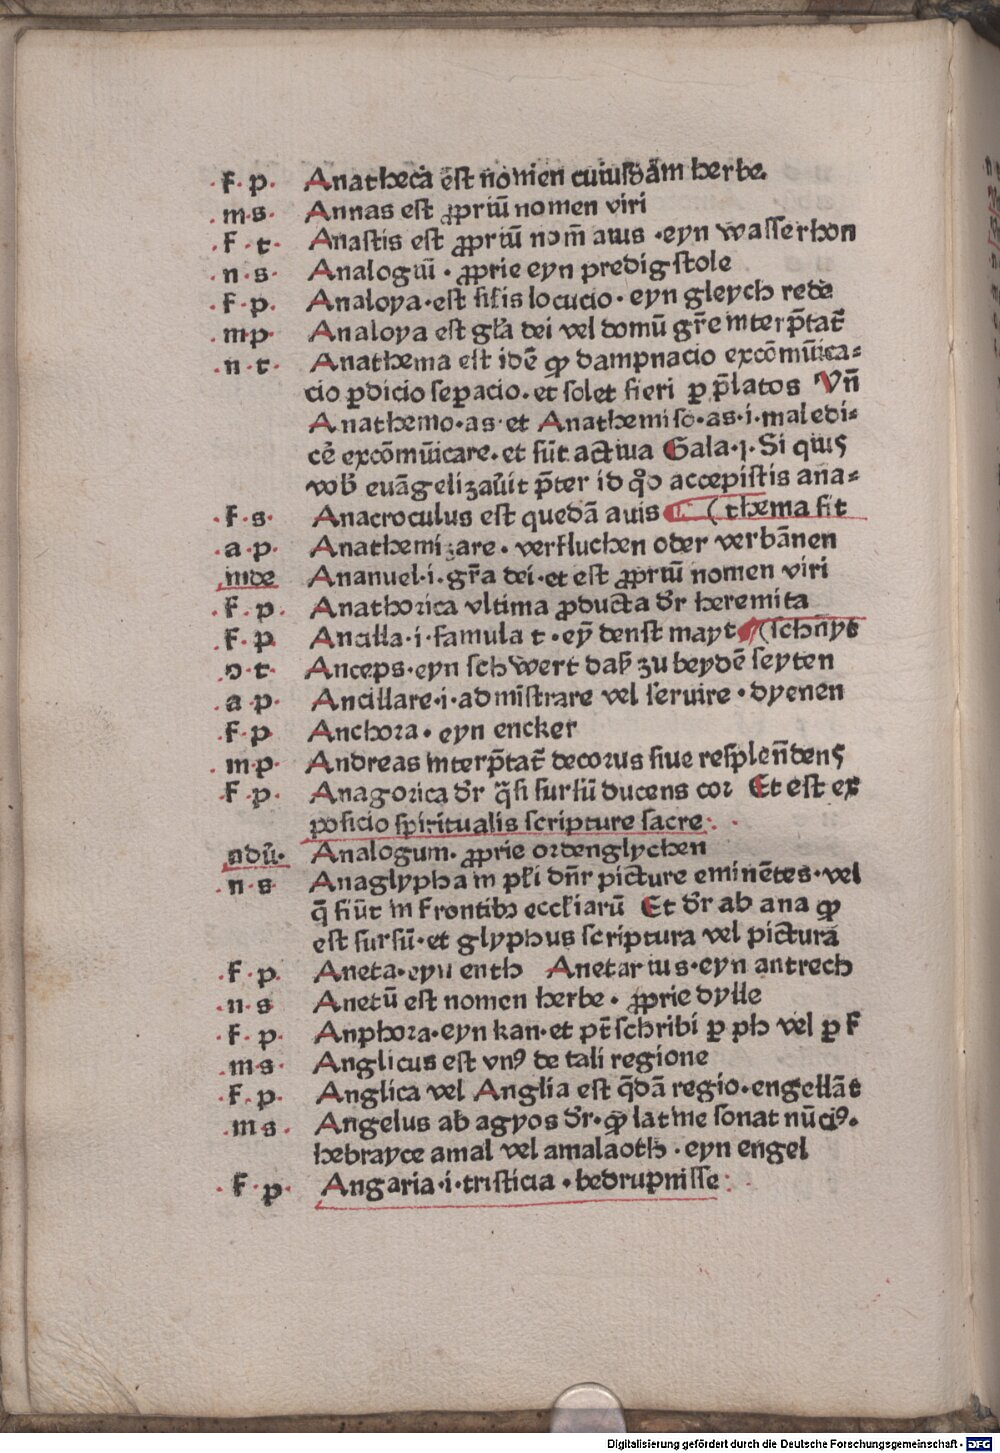 .F. p. Anatheca est nomen cuiusdam herbe.
.m.s. Annas est ꝓpriū nomen viri
.F. t. Anastis est ꝓpriū nom̄ auis .eyn wasserhon
.n.s. Analogiū . ꝓprie eyn predigstole
.F.p. Analoya.est silis locucio. eyn gleych rede
.m.p. Analoya est gl'a dei vel domū gr̄e interp̄tat̄
.n.t. Anathema est idē qꝫ dampnacio excōmūica-
cio ꝑdicio seꝑacio. et solet fieri ꝑ p̄latos Vn̄
Anathemo.as.et Anathemiso.as.i.maledi-
cē excōmūicare. et sūt actiua Gala.j. Si quis
vob' euāgelizau'it p̄ter id qd accepistis ana-
.F.s. Anacroculus est quedā auis (thema sit
.a.p. Anathemizare. verfluchen oder verbānen
inde Ananuel.i.gr̄a dei.et est ꝓpriū nomen viri
.F.p. Anathorica vltima ꝓducta dr̄ heremita
.F.p. Ancilla.i.famula t.eȳ denst mayt (schnyt
.o.t. Anceps.eyn schwert daß zu beydē seyten
.a.p. Ancillare.i.administrare vel seruire. dyenen
.F.p Anchora. eyn encker
.m.p. Andreas interp̄tat̄ decorus siue resplen̄dens
.F.p. Anagorica dr̄ q̄si sursū ducens cor Et est ex
posicio spiritualis scripture sacre:.
adū. Analogum. ꝓprie ordenglychen
.n.s Anaglypha in pl'i dn̄r picture eminētes.vel
q̄ fiūt in frontibꝫ eccl'iarū Et dr̄ ab ana qꝫ
est sursū.et glyphus scriptura vel pictura
.F.p. Aneta.eyn enth Anetarius.eyn antrech
.n.s Anetū est nomen herbe. ꝓprie dylle
.F.p. Anphora.eyn kan.et pt̄ schribi ꝑ ph vel ꝑ f
.m.s. Anglicus est vnꝰ de tali regione
.F.p. Anglica vel Anglia est q̄dā regio.engellāt
.m s. Angelus ab agyos dr̄.qꝫ latine sonat nūciꝰ.
hebrayce amal vel amalaoth . eyn engel
.F.p. Angaria.i.tristicia.bedrupnisse:.
Digitalisierung gefördert durch die Deutsche Forschungsgemeinschaft - DFG